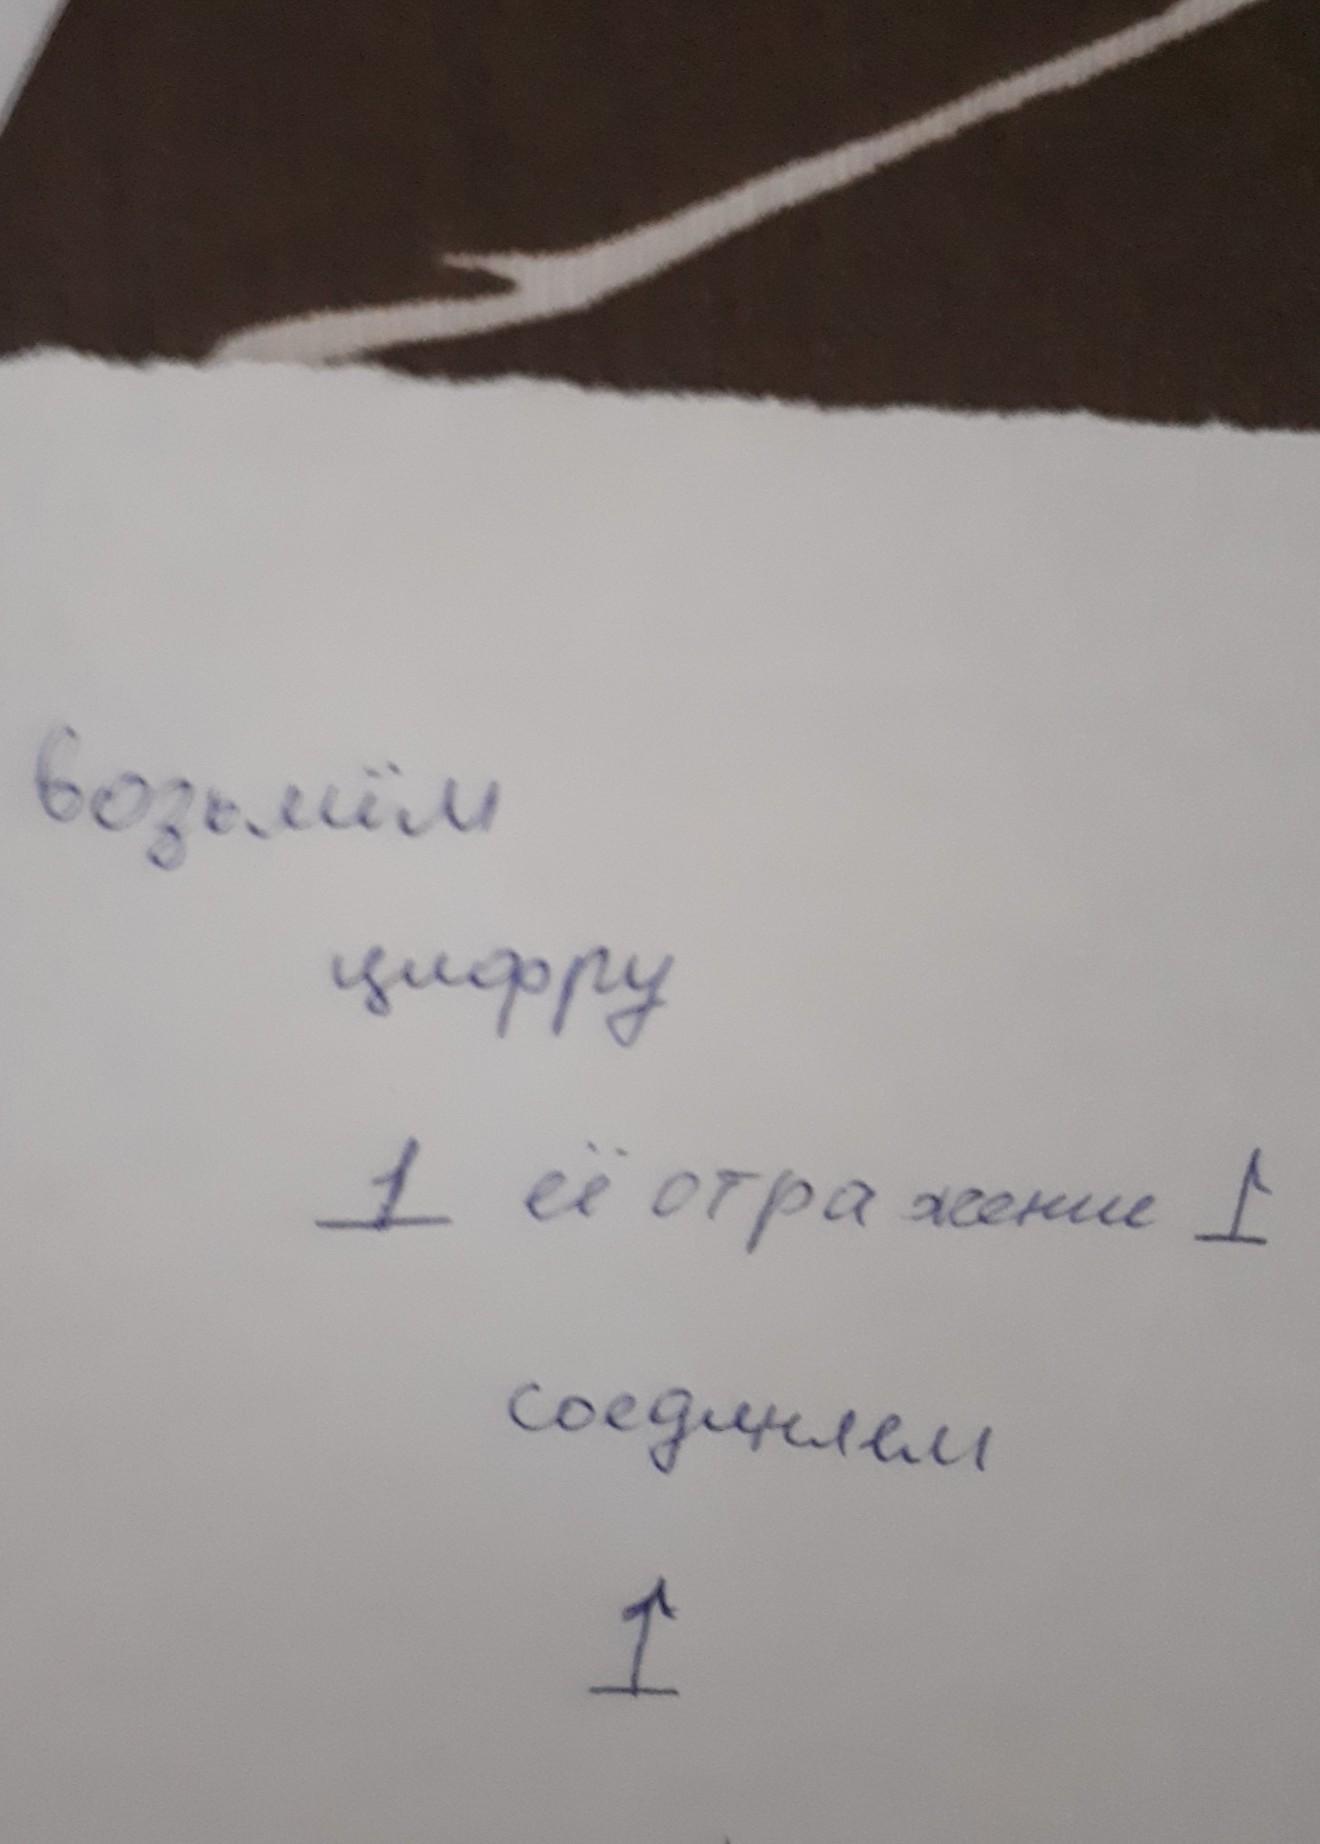 возьмём
цифру
1 её отражение 1
соединяем
↥